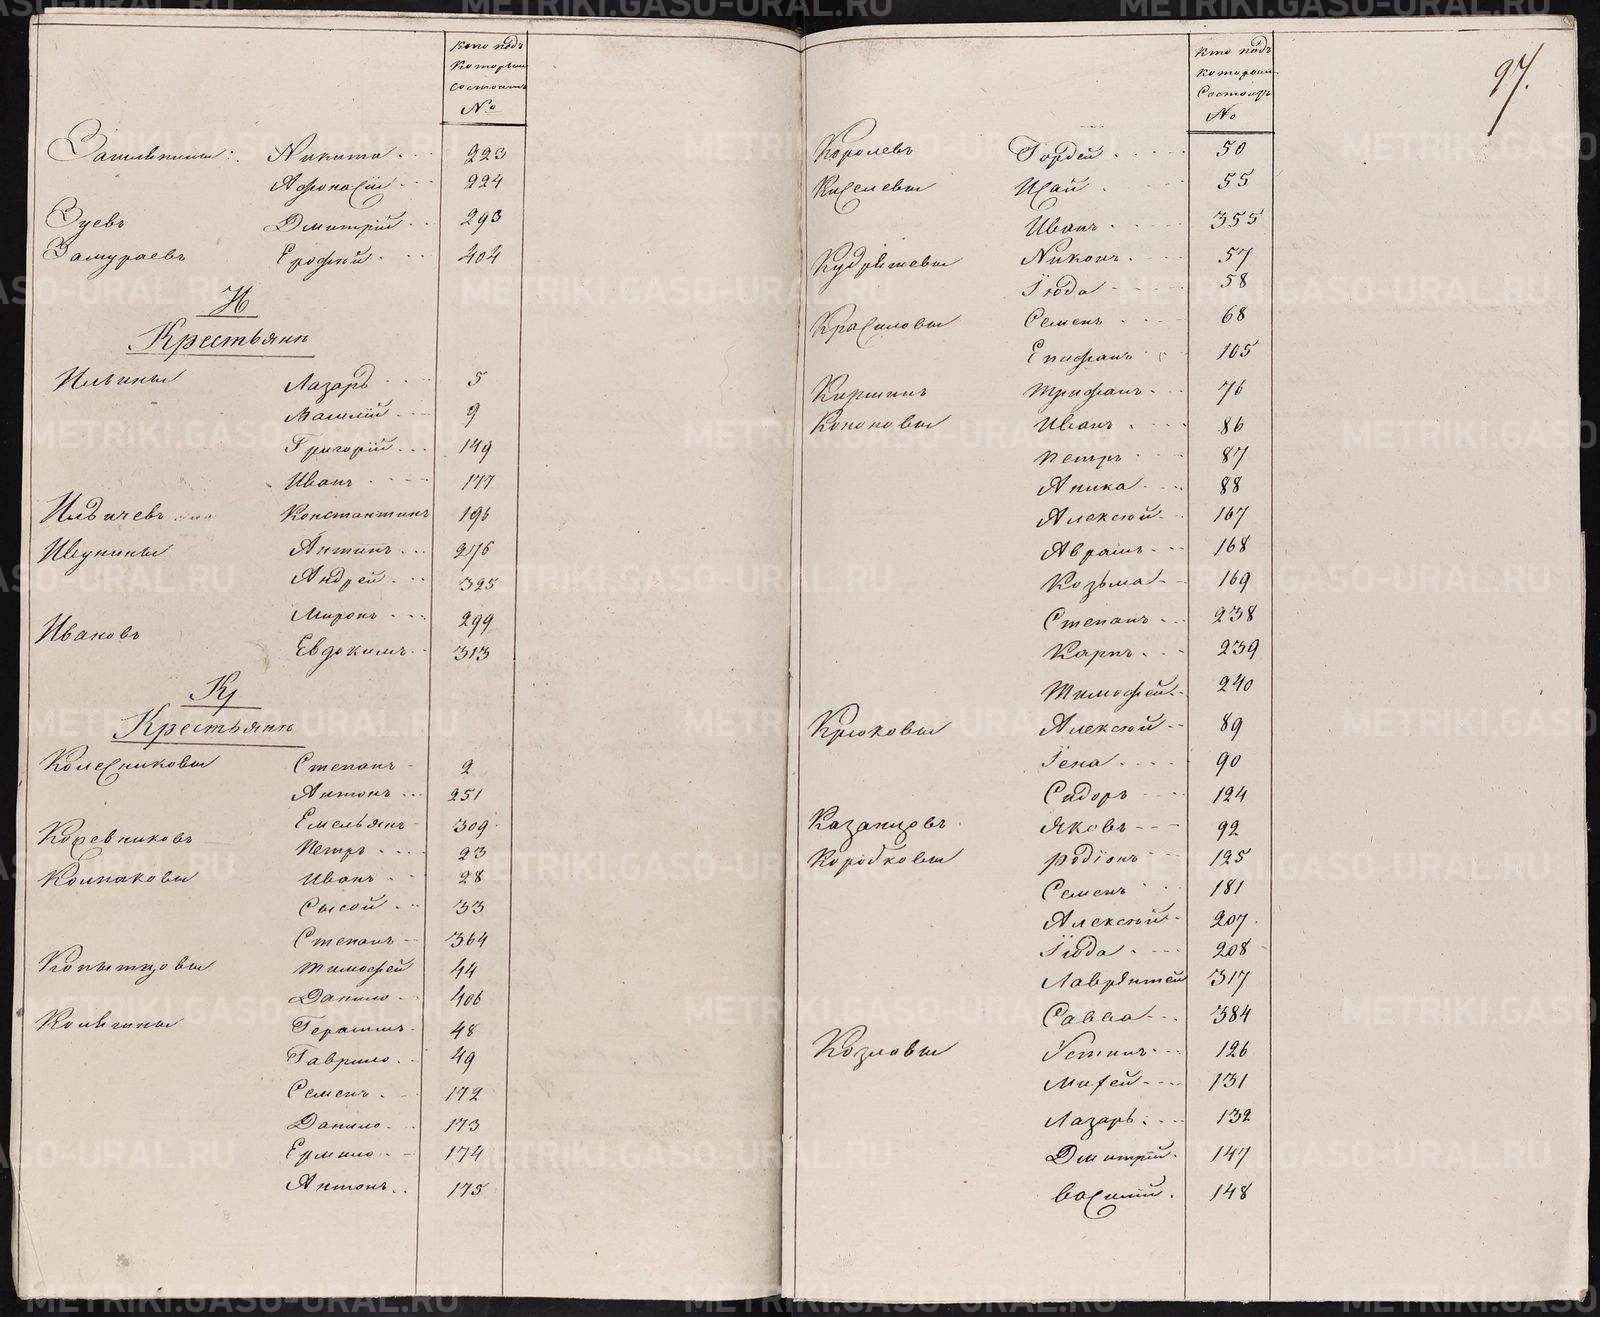 Кто подъ
которым
состоитъ
№
Затыкины: Никита 223
Афонасій 224
Зуевъ Дмитрій 293
Замураевъ Ерофѣй 404
И
Крестьянъ
Ильины Лазарь 5
Василій 9
Григорій 149
Иванъ 177
Ильичевъ Константинъ 196
Ивунины Антипъ 276
Андрей 325
Миронъ 299
Ивановъ Евдокимъ 313
К
Крестьянъ
Колесниковы Степанъ 2
Антонъ 251
Емельянъ 309
Коревниковъ Петръ 23
Колпаковы Иванъ 28
Сысой 33
Степанъ 364
Копытцовы Тимофей 44
Данило 406
Кошигины Герасимъ 48
Гаврило 49
Семенъ 172
Данило 173
Ермило 174
Антонъ 175
97.
Кто подъ
которым
Состоитъ
№
Королевъ Гордей 50
Киселевы Исай 55
Иванъ 355
Кудряшевы Никонъ 57
Іюда 58
Красиловы Семенъ 68
Епифанъ 105
Киршинъ Трифанъ 76
Кононовы Иванъ 86
Петръ 87
Аника 88
Алексѣй 167
Аврамъ 168
Козьма 169
Степанъ 238
Карпъ 239
Тимофей 240
Крюковы Алексѣй 89
Іена 90
Сидоръ 124
Казанцовъ Яковъ 92
Коробковы Родіонъ 125
Семенъ 181
Алексѣй 207
Іюда 208
Лаврентей 317
Савва 384
Козловы Устинъ 126
Михей 131
Лазарь 132
Дмитрій 147
Василій 148
METRIKI.GASO-URAL.RU